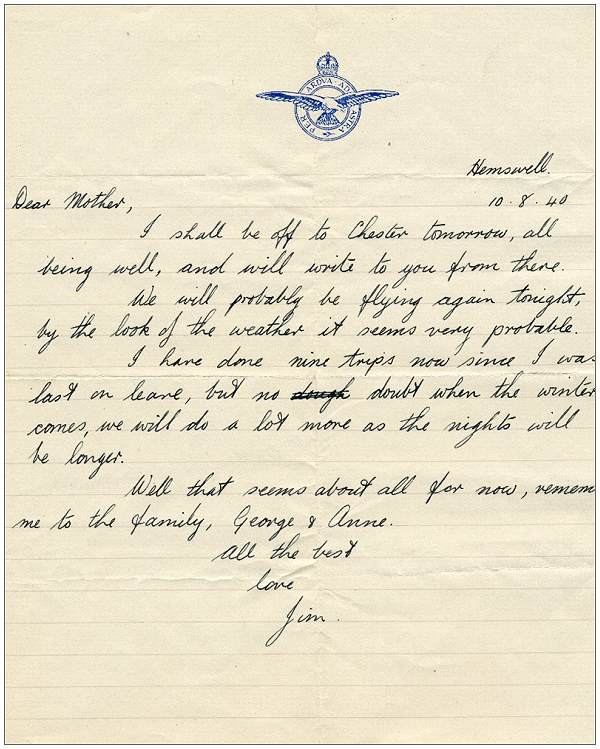 PER ARDVA AD ASTRA
Hemswell.
10. 8. 40
Dear Mother,
I shall be off to Chester tomorrow, all
being well, and will write to you from there.
We will probably be flying again tonight,
by the look of the weather it seems very probable.
I have done nine trips now since I was
last on leave, but no dough doubt when the winter
comes, we will do a lot more as the nights will
be longer.
Well that seems about all for now, remem
me to the family, George & Anne.
All the best
love
Jim.